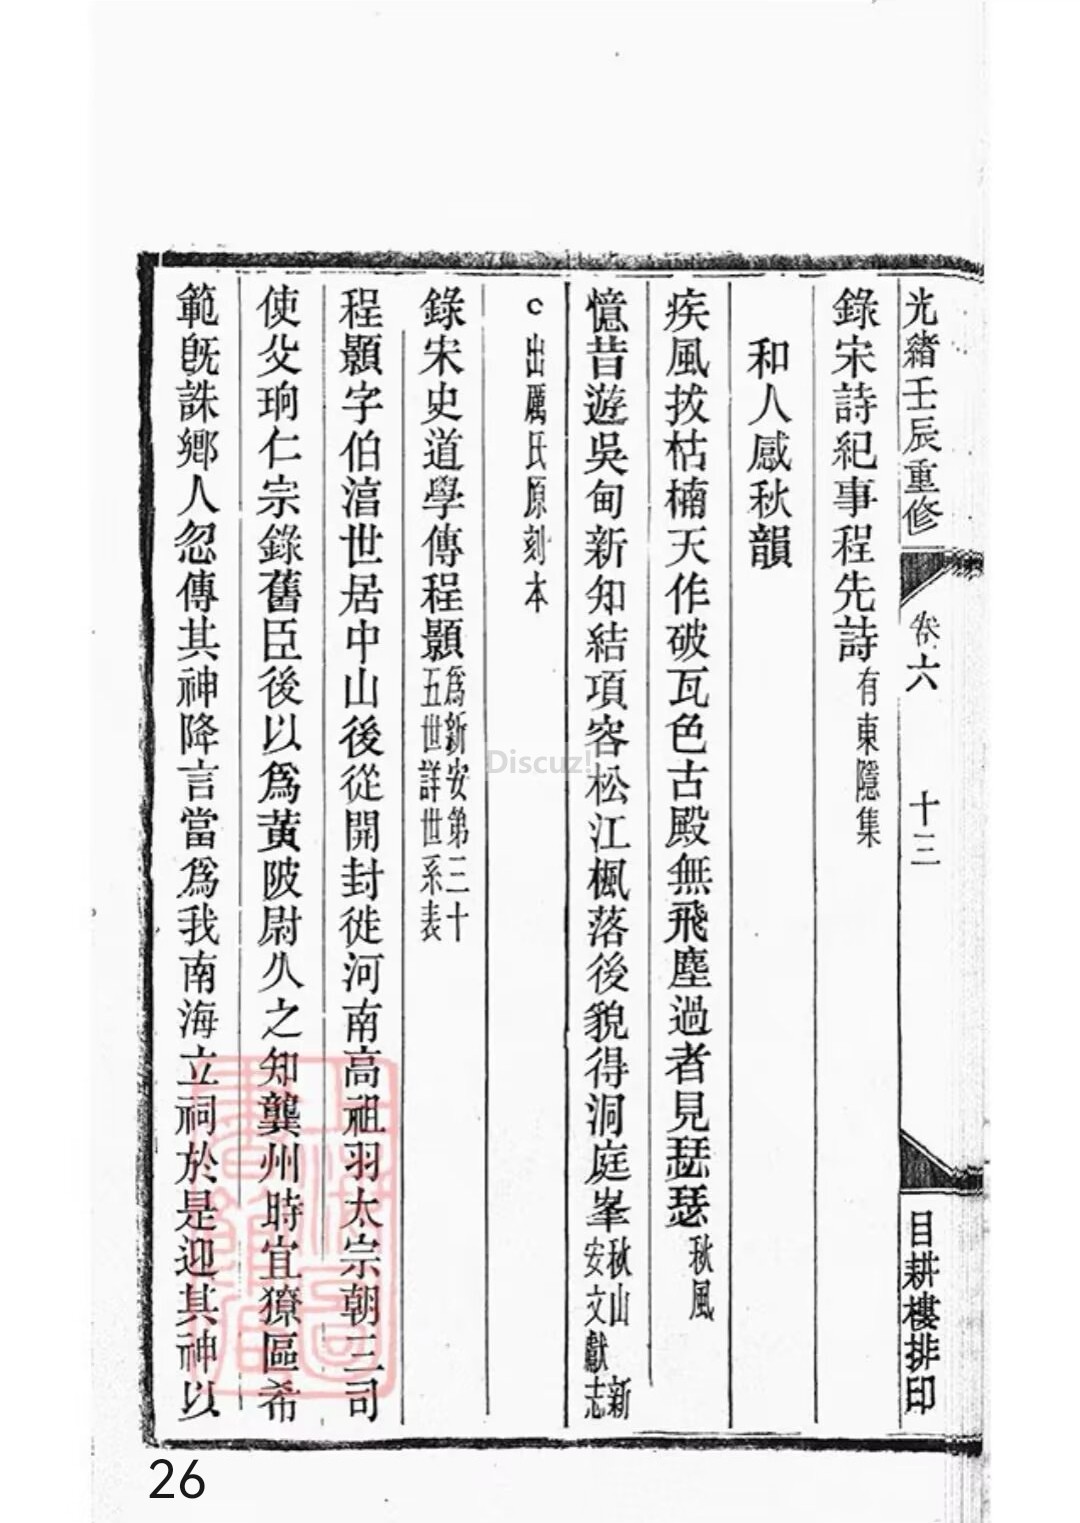 光緒壬辰重修
卷六
十三
目耕樓排印
錄宋詩紀事程先詩有東隱集
和人感秋韻
疾風拔枯楠天作破瓦色古殿無飛塵過者見瑟瑟秋風
憶昔遊吳甸新知結項容松江楓落後貌得洞庭峯秋山 新安文獻志
c出厲氏原刻本
錄宋史道學傳程顥為新安第三十五世詳世系表
程顥字伯淳世居中山後從開封徙河南高祖羽太宗朝三司
使父珦仁宗錄舊臣後以爲黃陂尉久之知龔州時宜獠區希
範旣誅鄉人忽傳其神降言當爲我南海立祠於是迎其神以
Discuz!
26